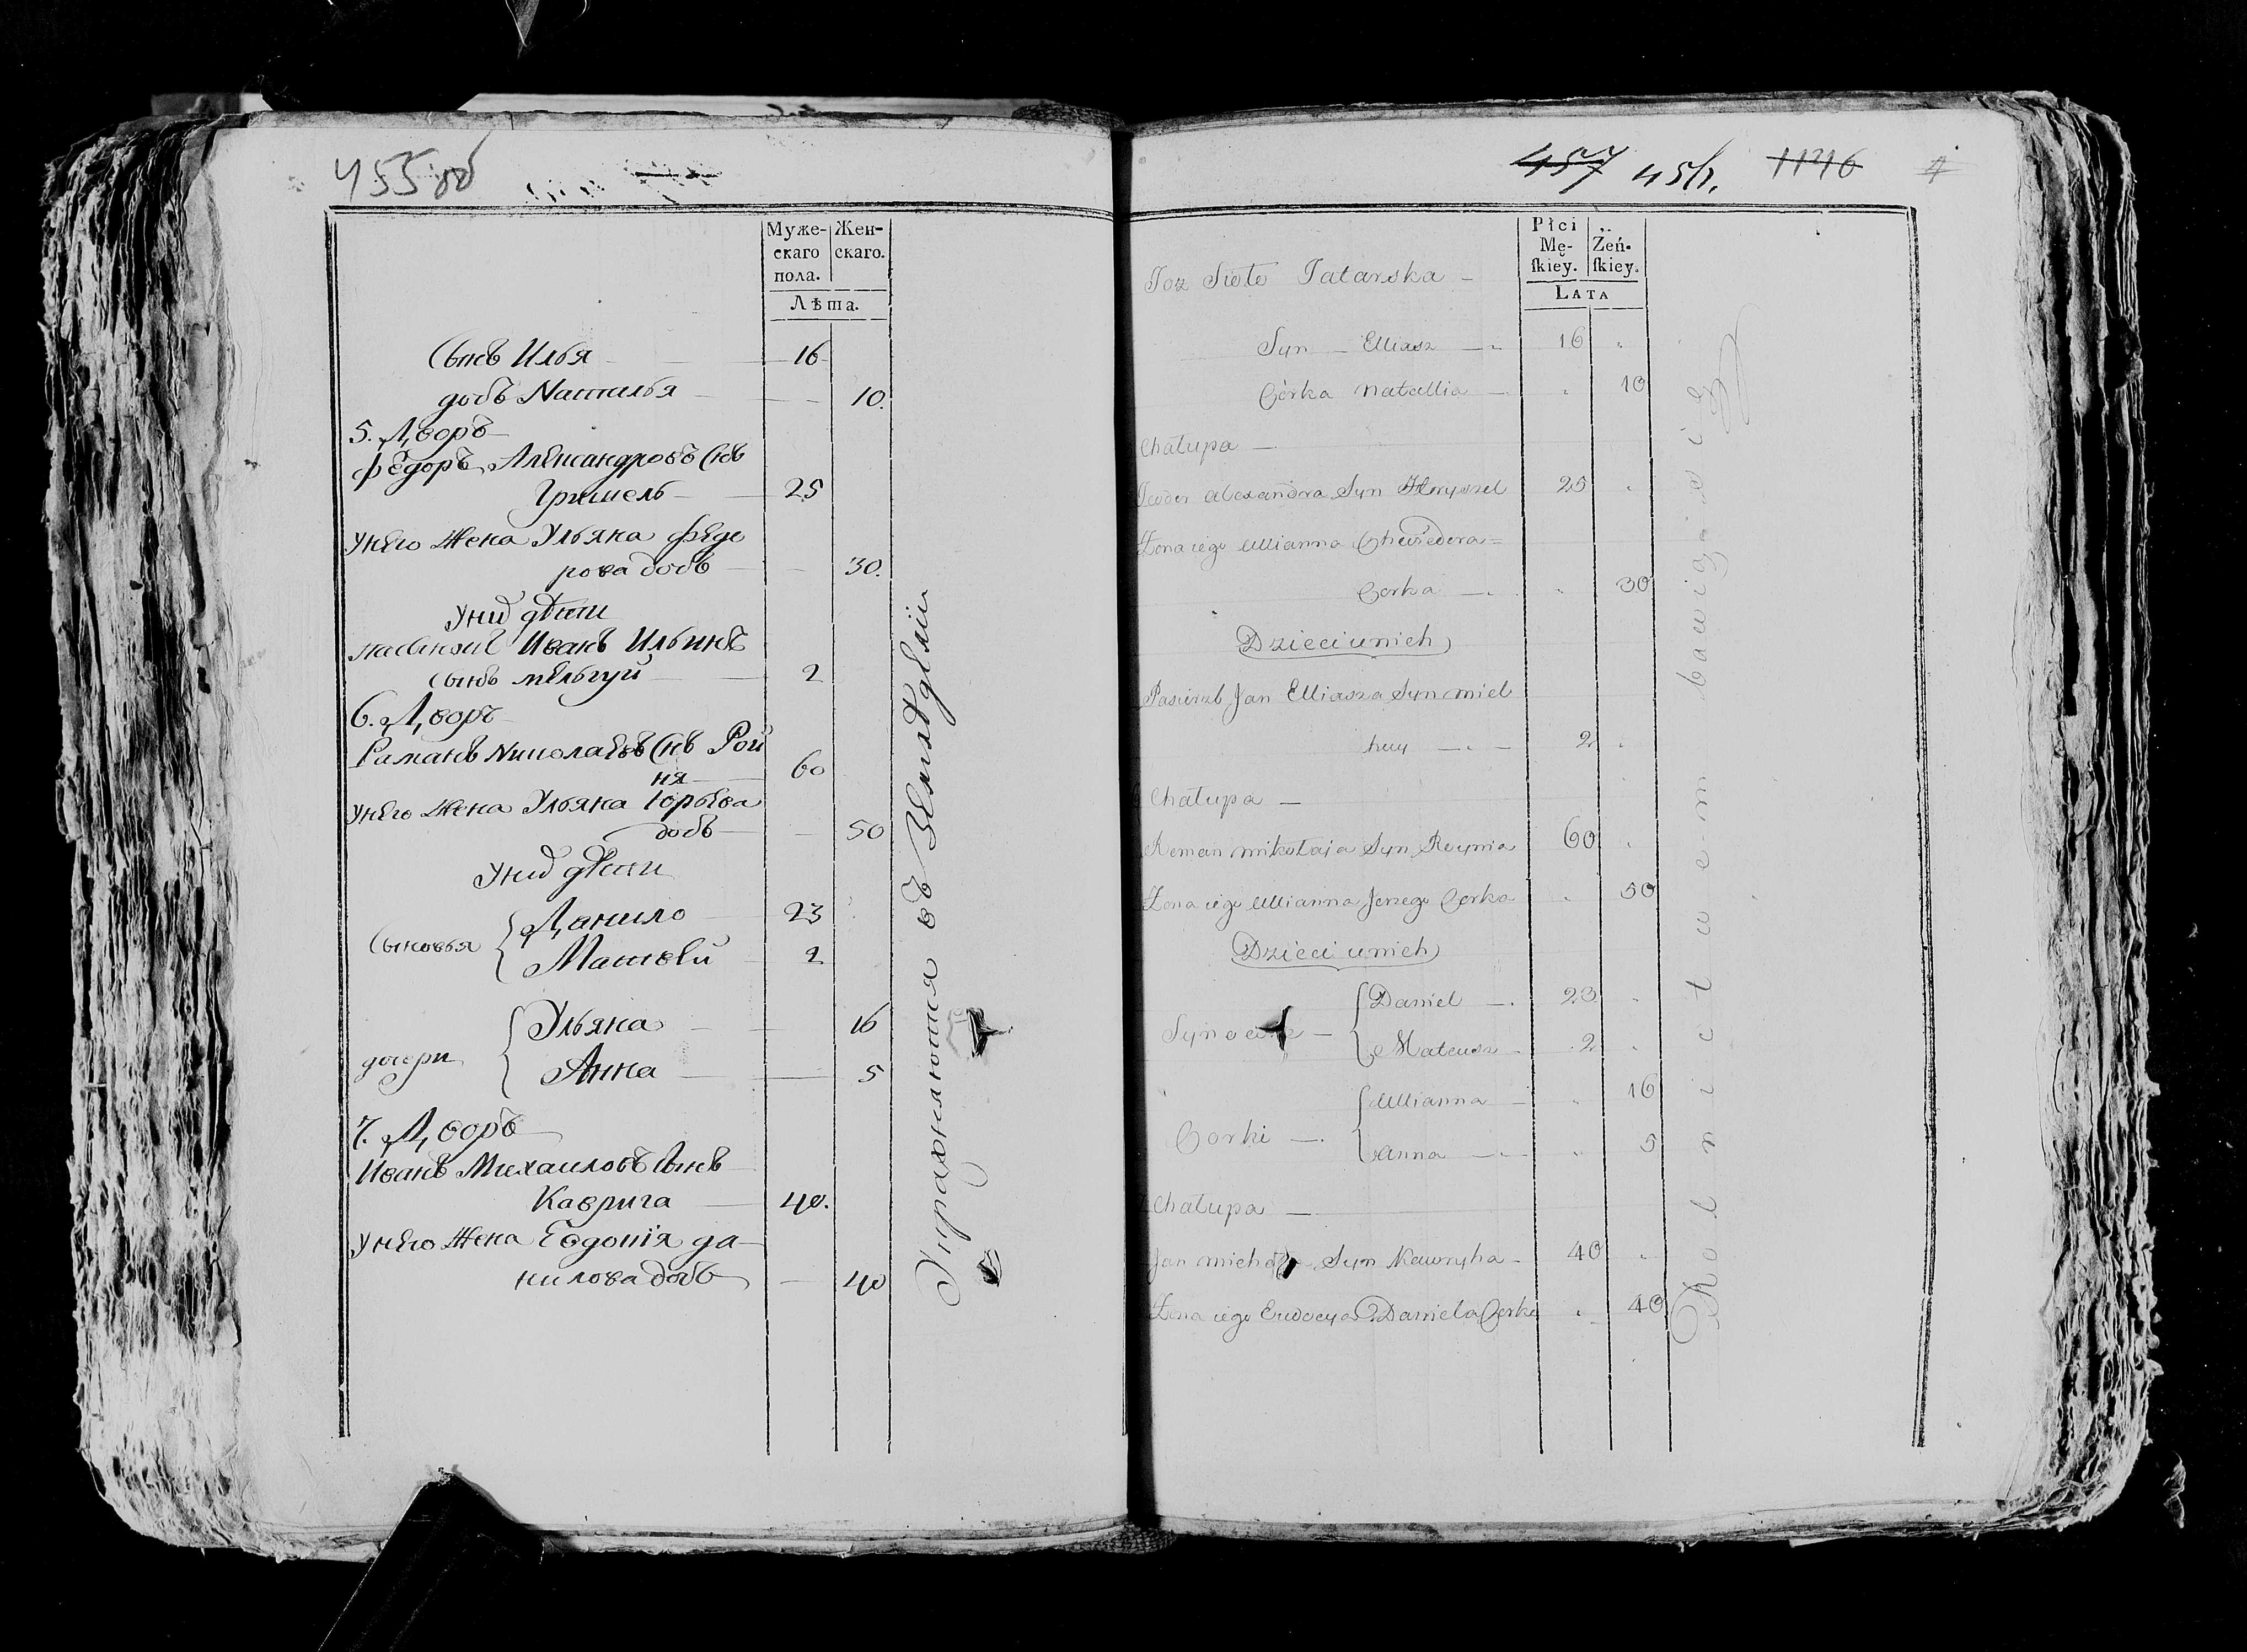 455 об
Муже-
скаго
пола.
Жен-
скаго.
Лѣта.
Сынъ Илья 16
дочь Наталья 10.
5. Дворъ
Федоръ Александровъ Снъ
Гришель 25
У него Жена Ульяна Феде
рова дочь 30.
У них дети
пасынокъ Иванъ Ильинъ
Сынъ мельгуй 2
6. Дворъ
Раманъ Николаевъ Снъ Рой
ня 60
У него Жена Ульяна Юрьева
дочь 50
У них дети
Сыновья
Данило 23
Матвей 2
дочери
Ульяна 16
Анна 5
7. Дворъ
Иванъ Михаиловъ Сынъ
Каврига 40.
У него Жена Евдокія да
нилова дочь 40
Упражняются въ Земледеліи
457 456. 1146
Płci
Mę-
skiey.
Żeń-
skiey.
LATA
Toż Sioło Tatarska
Syn Elliasz 16
Córka Natallia 10
Chałupa
Teodor Alexandra Syn Hryszel 25
Żona iego Ullianna Chwiedora
Corka 30
Dzieci u nich
Pasierzb Jan Elliasza Syn Miel
huy 2
6 Chałupa
Roman Mikołaja Syn Roynia 60
Żona iego Ullianna Jerzego Corka 50
Dzieci u nich
Synowie
Daniel 23
Mateusz 2
Corki
Ullianna 16
Anna 5
7 Chałupa
Jan Michała Syn Kawryha 40
Żona iego Ewdocya Daniela Corka 40
Rolnictwem bawią się